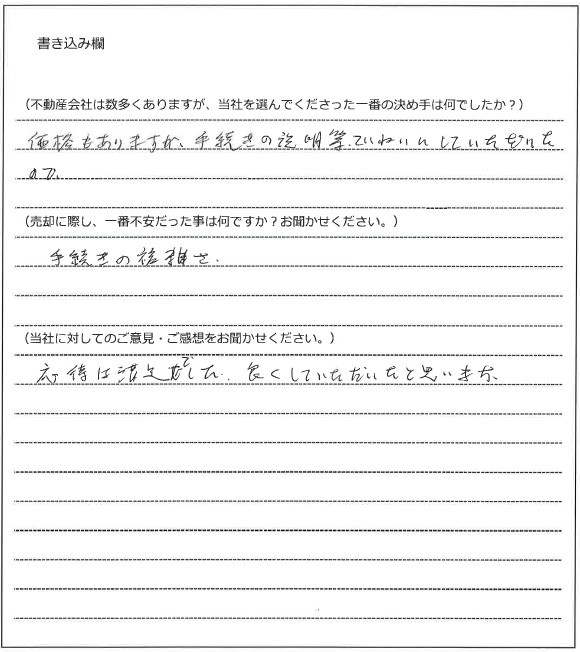 書き込み欄
(不動産会社は数多くありますが、当社を選んでくださった一番の決め手は何でしたか?)
価格もありますが、手続きの説明等、ていねいにしていただいた
ので。
(売却に際し、一番不安だった事は何ですか?お聞かせください。)
手続きの複雑さ、
(当社に対してのご意見・ご感想をお聞かせください。)
応待は満足でした、良くしていただいたと思います。